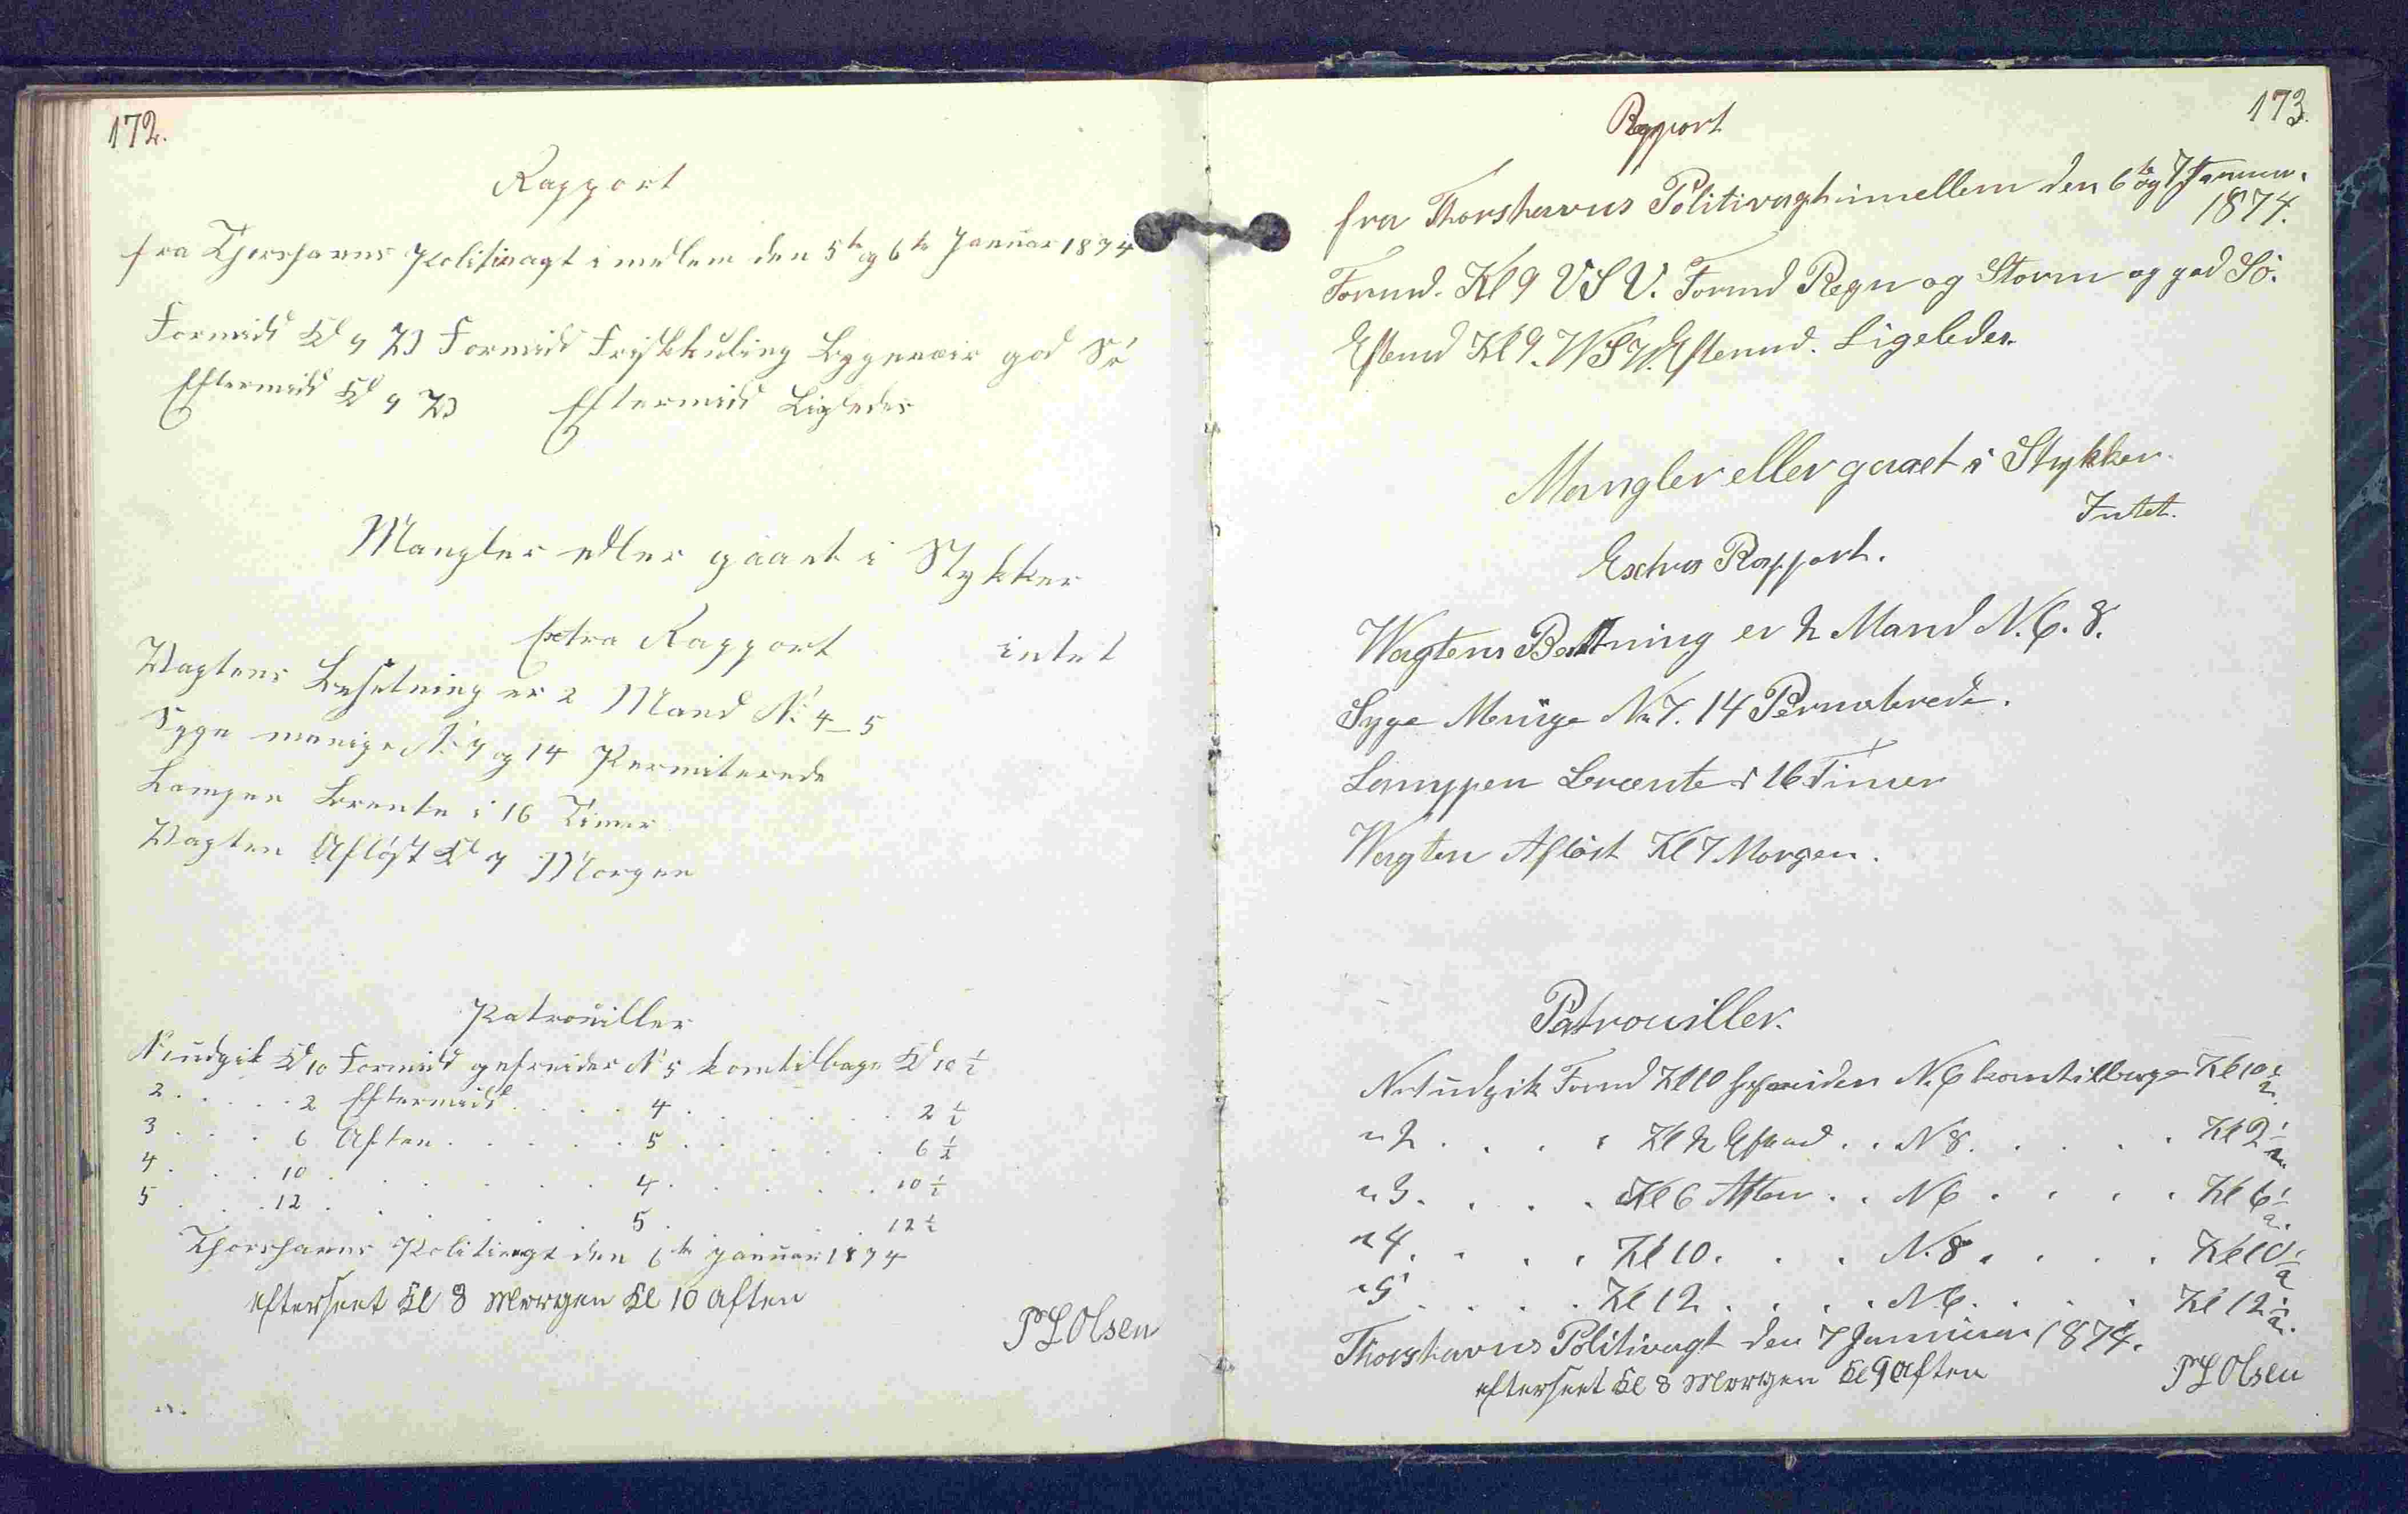 172.
Rapport
fra Thorshavns Politivagt imellem den 5te og 6te Januar 1874
Formidd Kl 9 V Formidd Friskkuling Bygeveir god Sö
Eftermidd Kl 9 V Eftermidd Ligledes
Mangler eller gaaet i Stykker
intet
Extra Rapport
Vagtens Besetning er 2 Mand No 4_5
Syge menige No 7 og 14 Permiterede
Lampen Brente i 16 Timer
Vagten Aflöst Kl 7 Morgen
Patrouiller
No 1 udgik Kl 10 Formidd gefreider No 5 kom tilbage Kl 10 1/2
2 . . . . . 2 Eftermidd . . . . 4 . . . . . . . 2 1/2
3 . . . . 6 Aften . . . . . 5 . . . . . . 6 1/2
4 . . . 10 . . . . . . . 4 . . . . . . 10 1/2
5 . . . 12 . . . . . . . 5 . . . . . 12 1/2
Thorshavns Politivagt den 6te Januar 1874
efterseet Kl 8 Morgen Kl 10 Aften
P L Olsen
173.
Rapport
fra Thorshavns Politivagt imellem den 6te og 7 Januar.
1874.
Formd. Kl 9 VSV. Formd Regn og Storm og god Sö.
Eftemd Kl 9. WSW. Eftermd. Ligeledes.
Mangler eller gaaet i Stykker.
Intet.
Extra Rapport.
Wagtens Besetning er 2 Mand N. 6. 8.
Syge Menige No 7. 14 Permiterede.
Lamppen Brænte i 16 Timer
Wagten Aflöst Kl 7 Morgen.
Patrouiller.
No 1 udgik Formd Kl 10 Gefreiden N. 6 kom tilbage Kl 10 1/2
" 2 . . . . Kl 2 Eftmd . . N 8 . . . . Kl 2 1/2
" 3 . . . . Kl 6 Aften . . N 6 . . . . Kl 6 1/2
" 4 . . . . Kl 10 . . . N. 8 . . . . Kl 10 1/2
" 5 . . . . Kl 12 . . . . N 6 . . . Kl 12 1/2
Thorshavns Politivagt den 7 Januar 1874.
efterseet Kl 8 Morgen Kl 9 Aften
P L Olsen